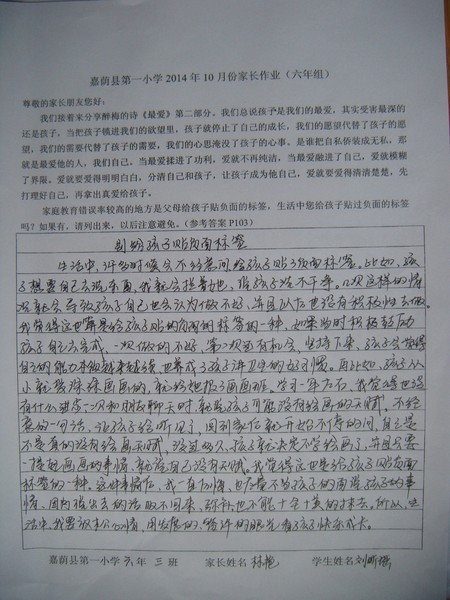 嘉荫县第一小学2014年10月份家长作业（六年组）
尊敬的家长朋友您好：
我们接着来分享醉梅的诗《最爱》第二部分。我们总说孩子是我们的最爱，其实受害最深的
还是孩子，当把孩子锁进我们的欲望里，孩子就停止了自己的成长。我们的愿望代替了孩子的愿
望，我们的需要代替了孩子的需要，我们的心思淹没了孩子的心事。是谁把自私伪装成无私，那
就是最爱他的人，我们自己。当最爱揉进了功利，爱就不再纯洁，当最爱融进了自己，爱就模糊
了界限。爱就要爱得明明白白，分清自己和孩子，让孩子成为他自己，爱就要爱得清清楚楚，先
打理好自己，再拿出真爱给孩子。
家庭教育错误率较高的地方是父母给孩子贴负面的标签，生活中您给孩子贴过负面的标签
吗？如果有，请列出来，以后注意避免。（参考答案P103）
别给孩子贴负面标签
生活中，许多时候会不经意间给孩子贴了负面标签。比如，孩
子想要自己去洗东西，我就会提着说，怕孩子洗不干净。几次这样的情
况就会导致孩子自己也会认为做不好，并且以后也没有积极性去做。
我觉得这也算是给孩子贴的负面的标签的一种，如果当时积极鼓励
孩子自己去完成，一次做的不好，第二次还有机会，坚持下来，孩子会觉得
自己的能力不但越来越强，也养成了孩子讲卫生的好习惯。再比如，孩子从
小就喜欢画画，就给她报了画画班，学习一年左右，我觉得也没
有什么进步，一次和朋友聊天时，就说孩子可能没有绘画的天赋，不经
意的一句话，让孩子给听见了，回到家后就开始不停的问，自己是
不是真的没有绘画天赋，没过多久，孩子就决定不学绘画了，并且只要
一提起画画的事情，就说自己没有天赋。我觉得这也是给孩子贴负面
标签的一种，这件事情后，我一直自责，也尽量不当孩子的面说孩子的事
情，因为说出去的话收不回来，弥补也不能十全十美的了。所以，生
活中，我要认真公心，用发展的、赞许的眼光看孩子快乐成长。
嘉荫县第一小学 六 年 三 班 家长姓名 林艳 学生姓名 刘昕瑶